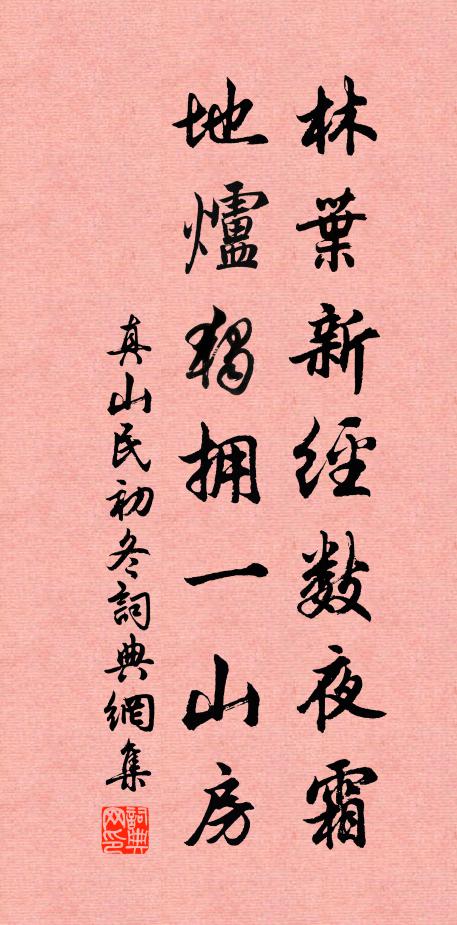 林葉新經數夜霜
地爐獨擁一山房
真山民初冬詞典網集
詞典网印